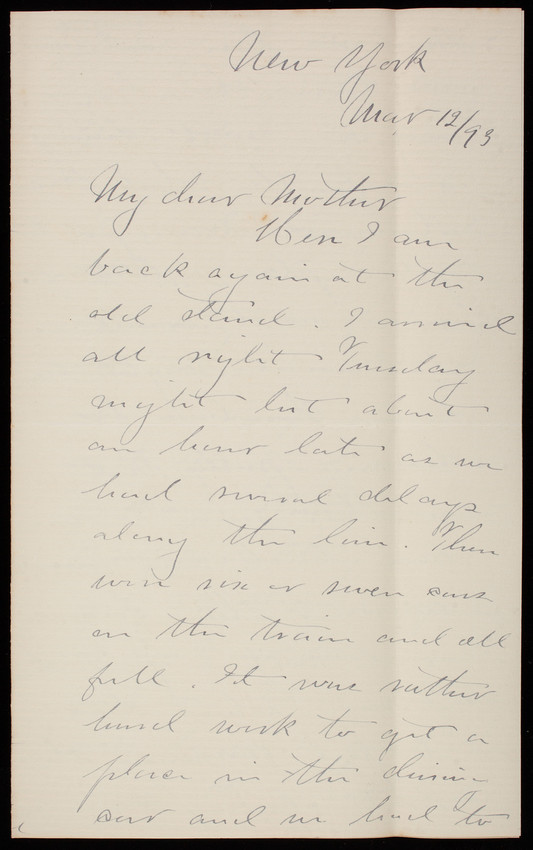 New York
Mar 12/93
My dear Mother
Here I am
back again at the
old stand. I arrived
all right Tuesday
night but about
an hour late as we
had several delays
along the line. There
were six or seven cars
on the train and all
full. It was rather
hard work to get a
place in the dining
car and we had to